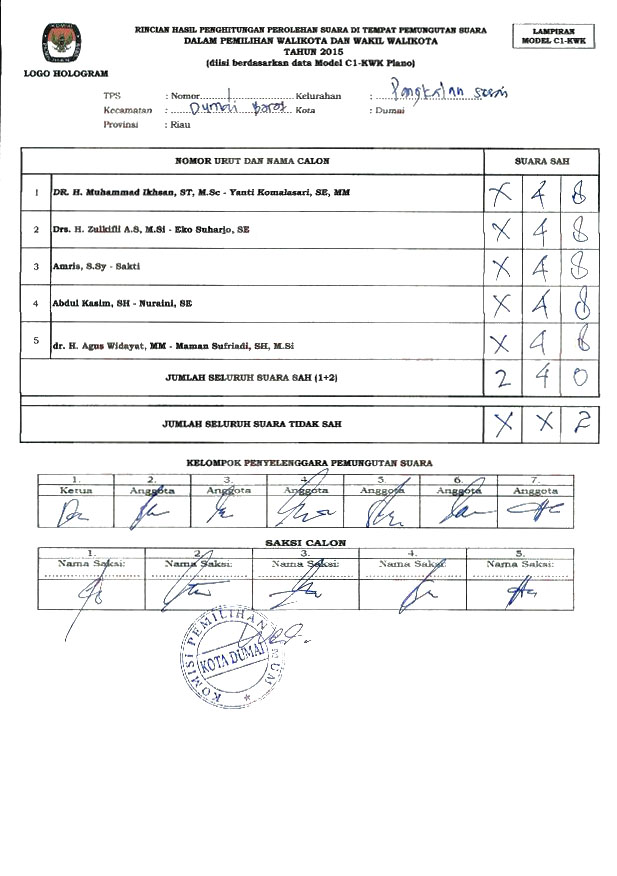 RINCIAN HASIL PENGHITUNGAN PEROLEHAN SUARA DI TEMPAT PEMUNGUTAN SUARA
DALAM PEMILIHAN WALIKOTA DAN WAKIL WALIKOTA
TAHUN 2015
(diisi berdasarkan data Model C1-KWK Plano)
LAMPIRAN
MODEL C1-KWK
LOGO HOLOGRAM
TPS : Nomor 1 Kelurahan : Pangkalan sesai
Kecamatan : Dumai Barat Kota : Dumai
Provinsi : Riau
NOMOR URUT DAN NAMA CALON SUARA SAH
1 DR. H. Muhammad Ikhsan, ST, M.Sc - Yanti Komalasari, SE, MM X 4 8
2 Drs. H. Zulkifli A.S, M.Si - Eko Suharjo, SE X 4 8
3 Amris, S.Sy - Sakti X 4 8
4 Abdul Kasim, SH - Nuraini, SE X 4 8
5 dr. H. Agus Widayat, MM - Maman Sufriadi, SH, M.Si X 4 8
JUMLAH SELURUH SUARA SAH (1+2) 2 4 0
JUMLAH SELURUH SUARA TIDAK SAH X X 2
KELOMPOK PENYELENGGARA PEMUNGUTAN SUARA
1. 2. 3. 4. 5. 6. 7.
Ketua Anggota Anggota Anggota Anggota Anggota Anggota
SAKSI CALON
1. 2. 3. 4. 5.
Nama Saksi: Nama Saksi: Nama Saksi: Nama Saksi: Nama Saksi:
KOMISI PEMILIHAN UMUM
KOTA DUMAI